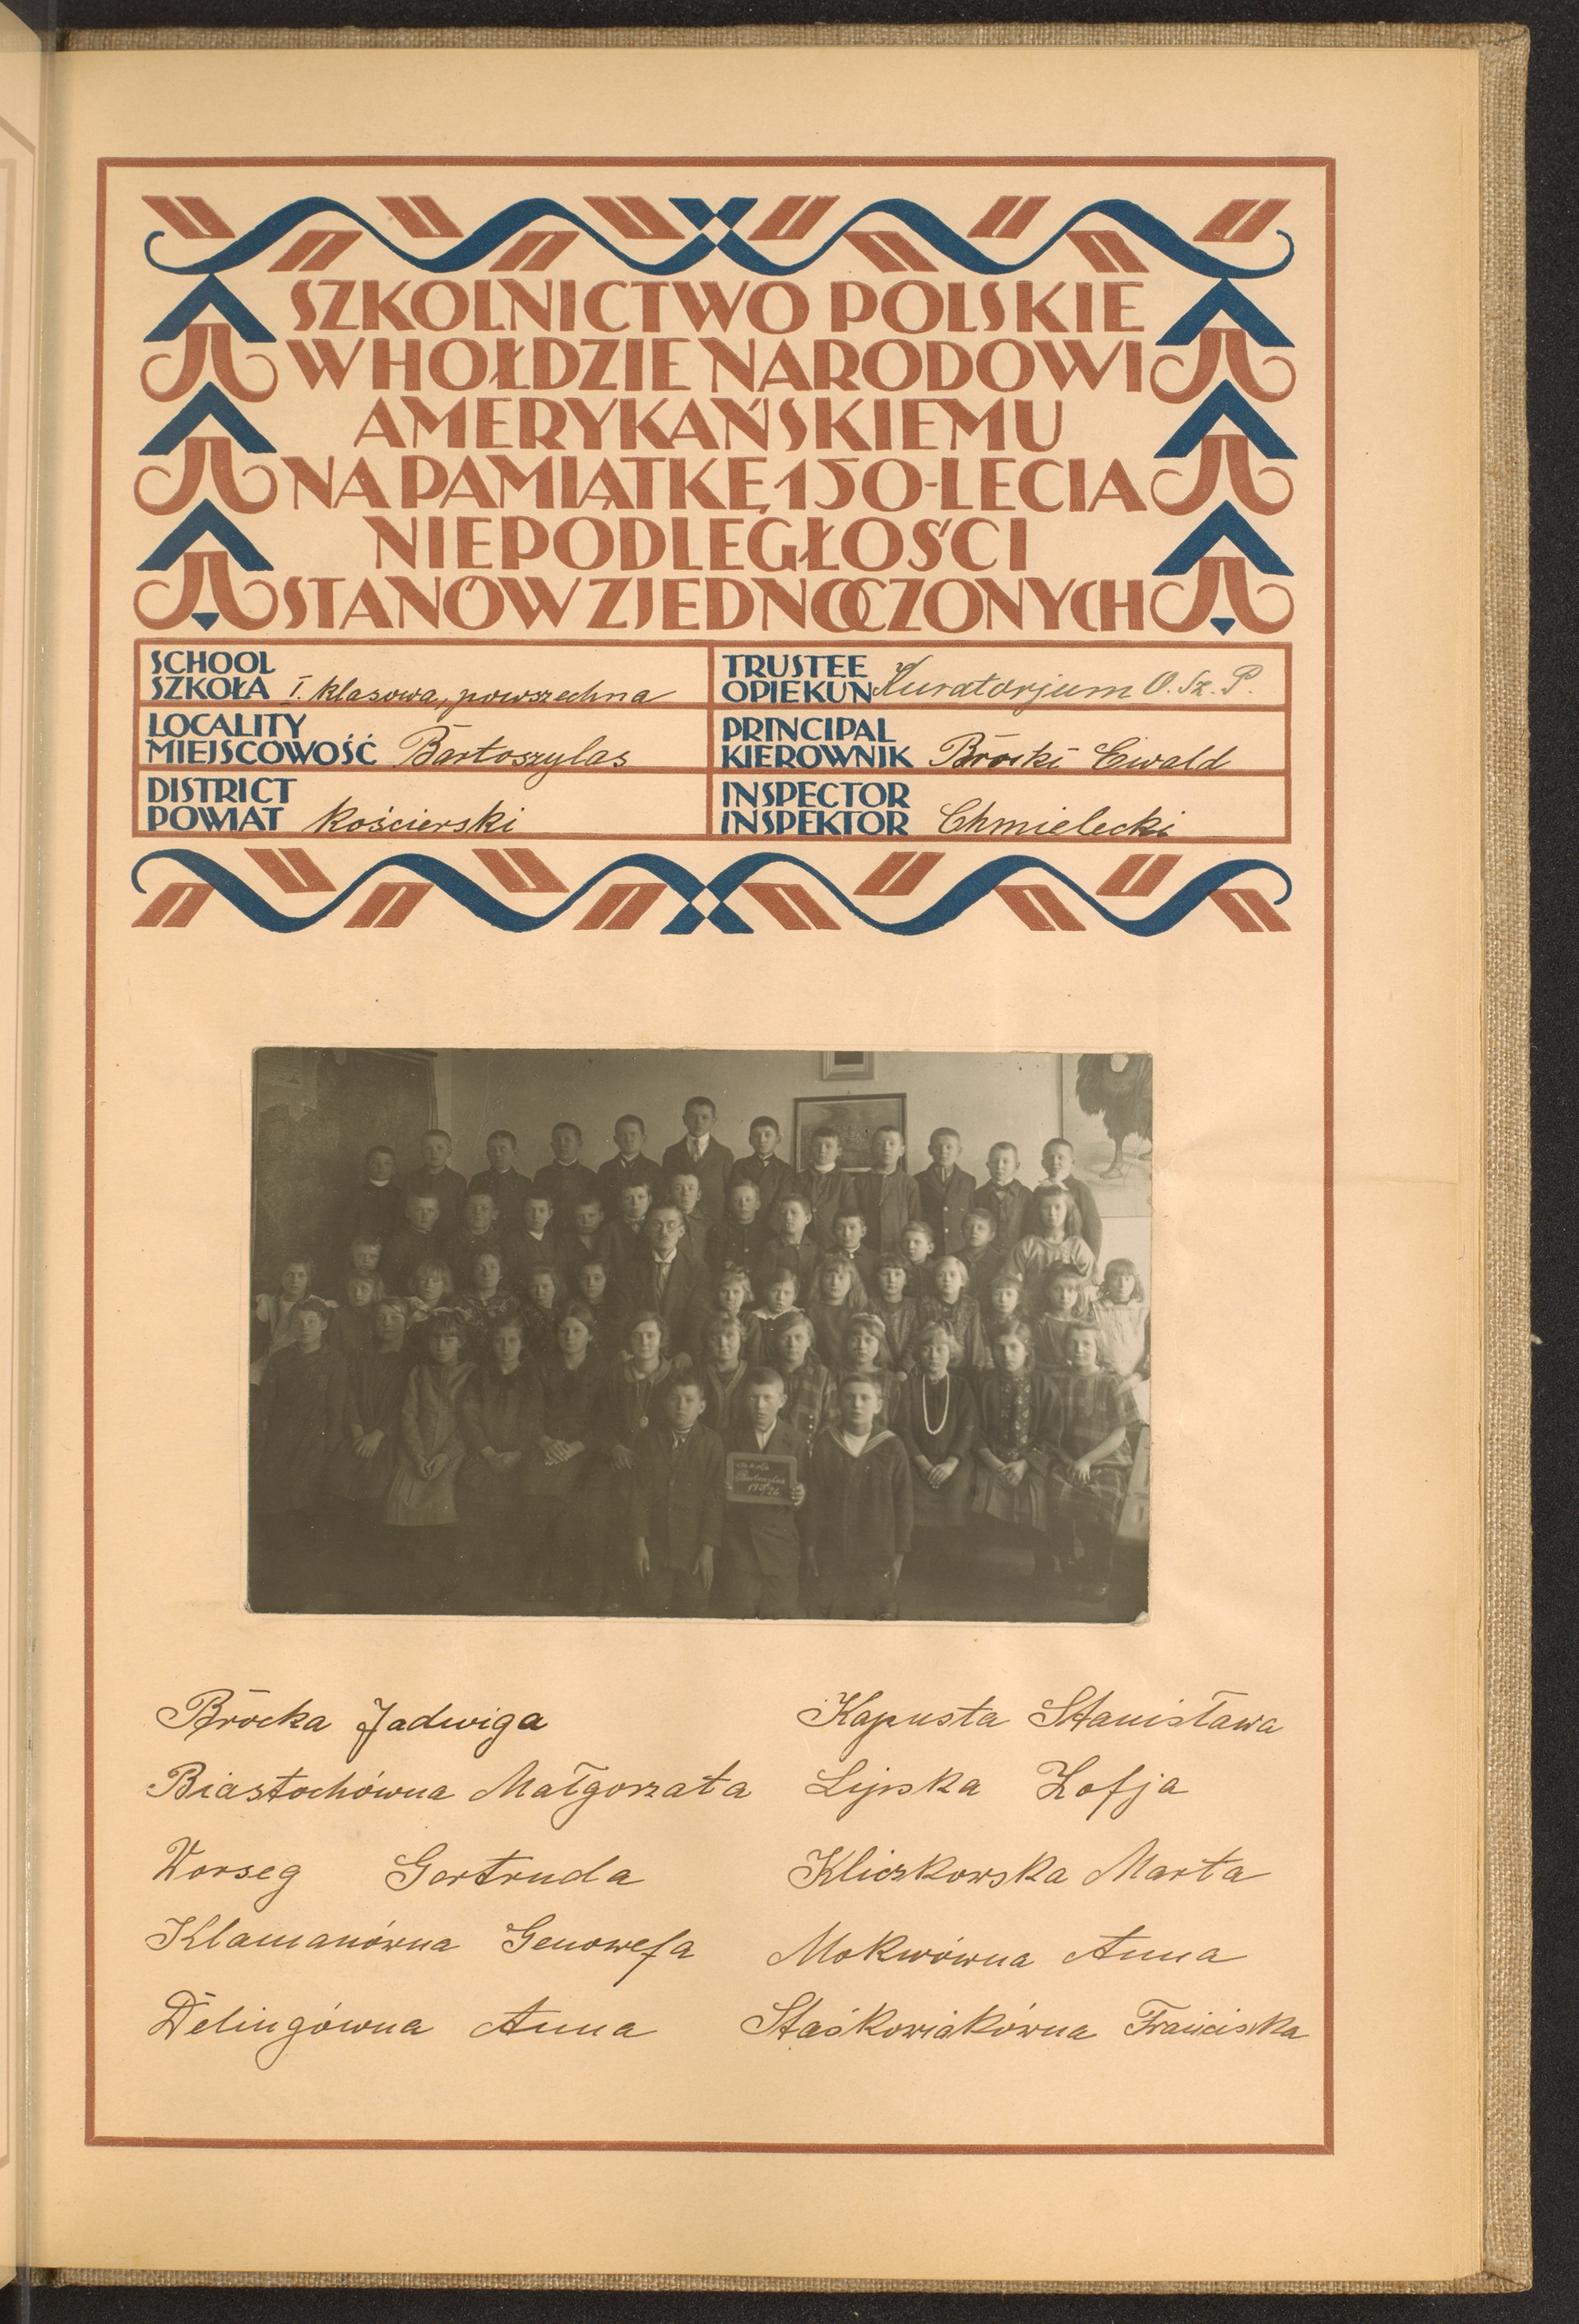 SZKOLNICTWO POLSKIE
W HOŁDZIE NARODOWI
AMERYKAŃSKIEMU
NA PAMIĄTKĘ 150-LECIA
NIEPODLEGŁOŚCI
STANÓW ZJEDNOCZONYCH
SCHOOL
SZKOŁA I. klasowa, powszechna
TRUSTEE
OPIEKUN Kuratorjum O. Sz. P.
LOCALITY
MIEJSCOWOŚĆ Bartoszylas
PRINCIPAL
KIEROWNIK Brocki Ewald
DISTRICT
POWIAT Kościerski
INSPECTOR
INSPEKTOR Chmielecki
Szkoła
Bartoszylas
1926
Brocka Jadwiga
Biastochówna Małgorzata
Worseg Gertruda
Klamanówna Genowefa
Delingówna Anna
Kapusta Stanisława
Lipska Zofja
Kliczkowska Marta
Mokwówna Anna
Staśkowiakówna Franciska